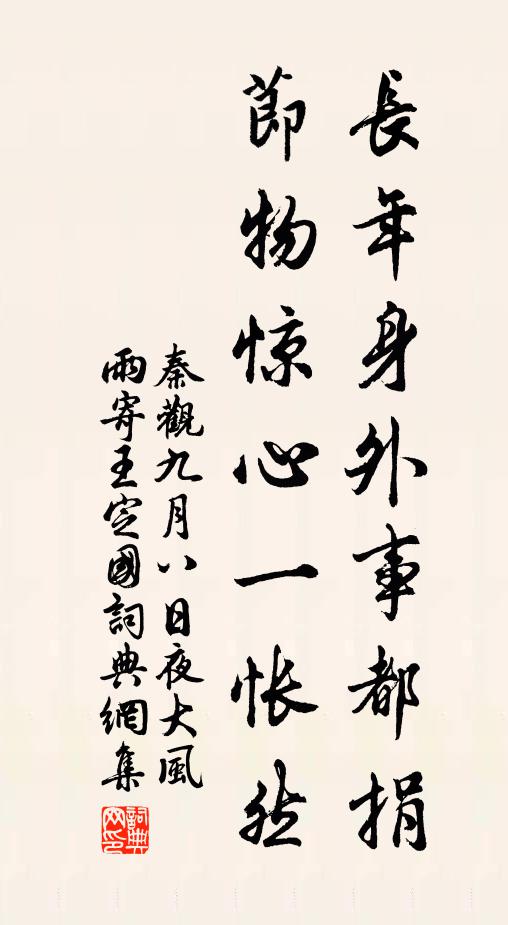 長年身外事都捐
節物惊心一怅然
秦觀九月八日夜大風
雨寄王定國詞典網集
詞典
网印